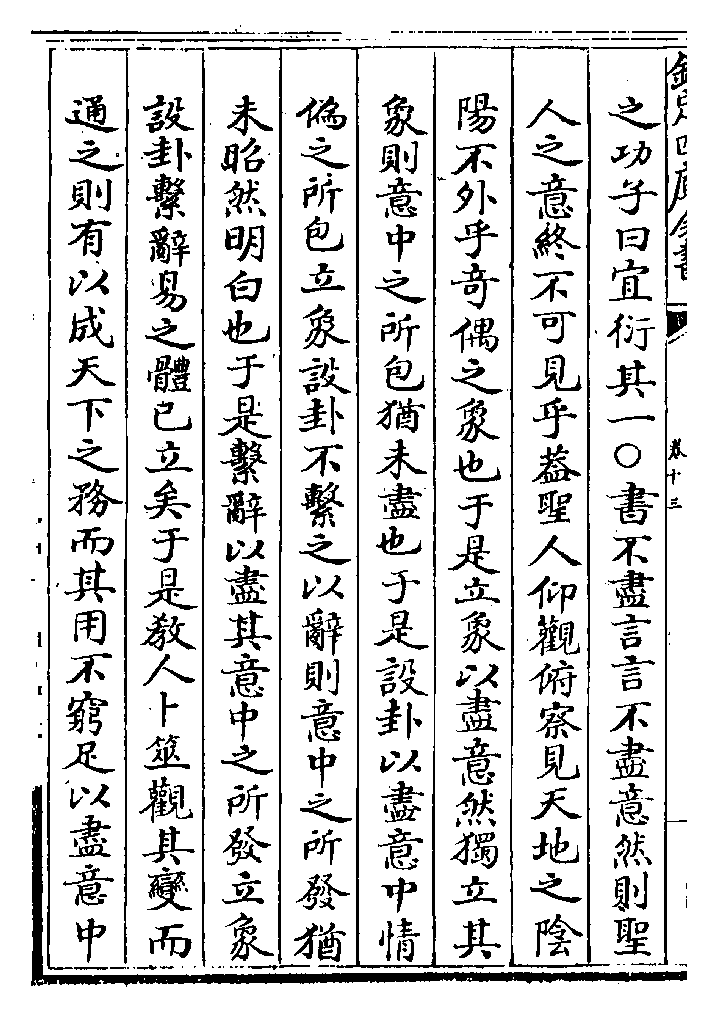 欽定四庫全書
卷十三
之功子曰宜衍其一〇書不盡言言不盡意然則聖
人之意終不可見乎葢聖人仰觀俯察見天地之陰
陽不外乎奇偶之象也于是立象以盡意然獨立其
象則意中之所包猶未盡也于是設卦以盡意中情
偽之所包立象設卦不繫之以辭則意中之所發猶
未昭然明白也于是繫辭以盡其意中之所發立象
設卦繫辭易之體已立矣于是教人卜筮觀其變而
通之則有以成天下之務而其用不窮足以盡意中